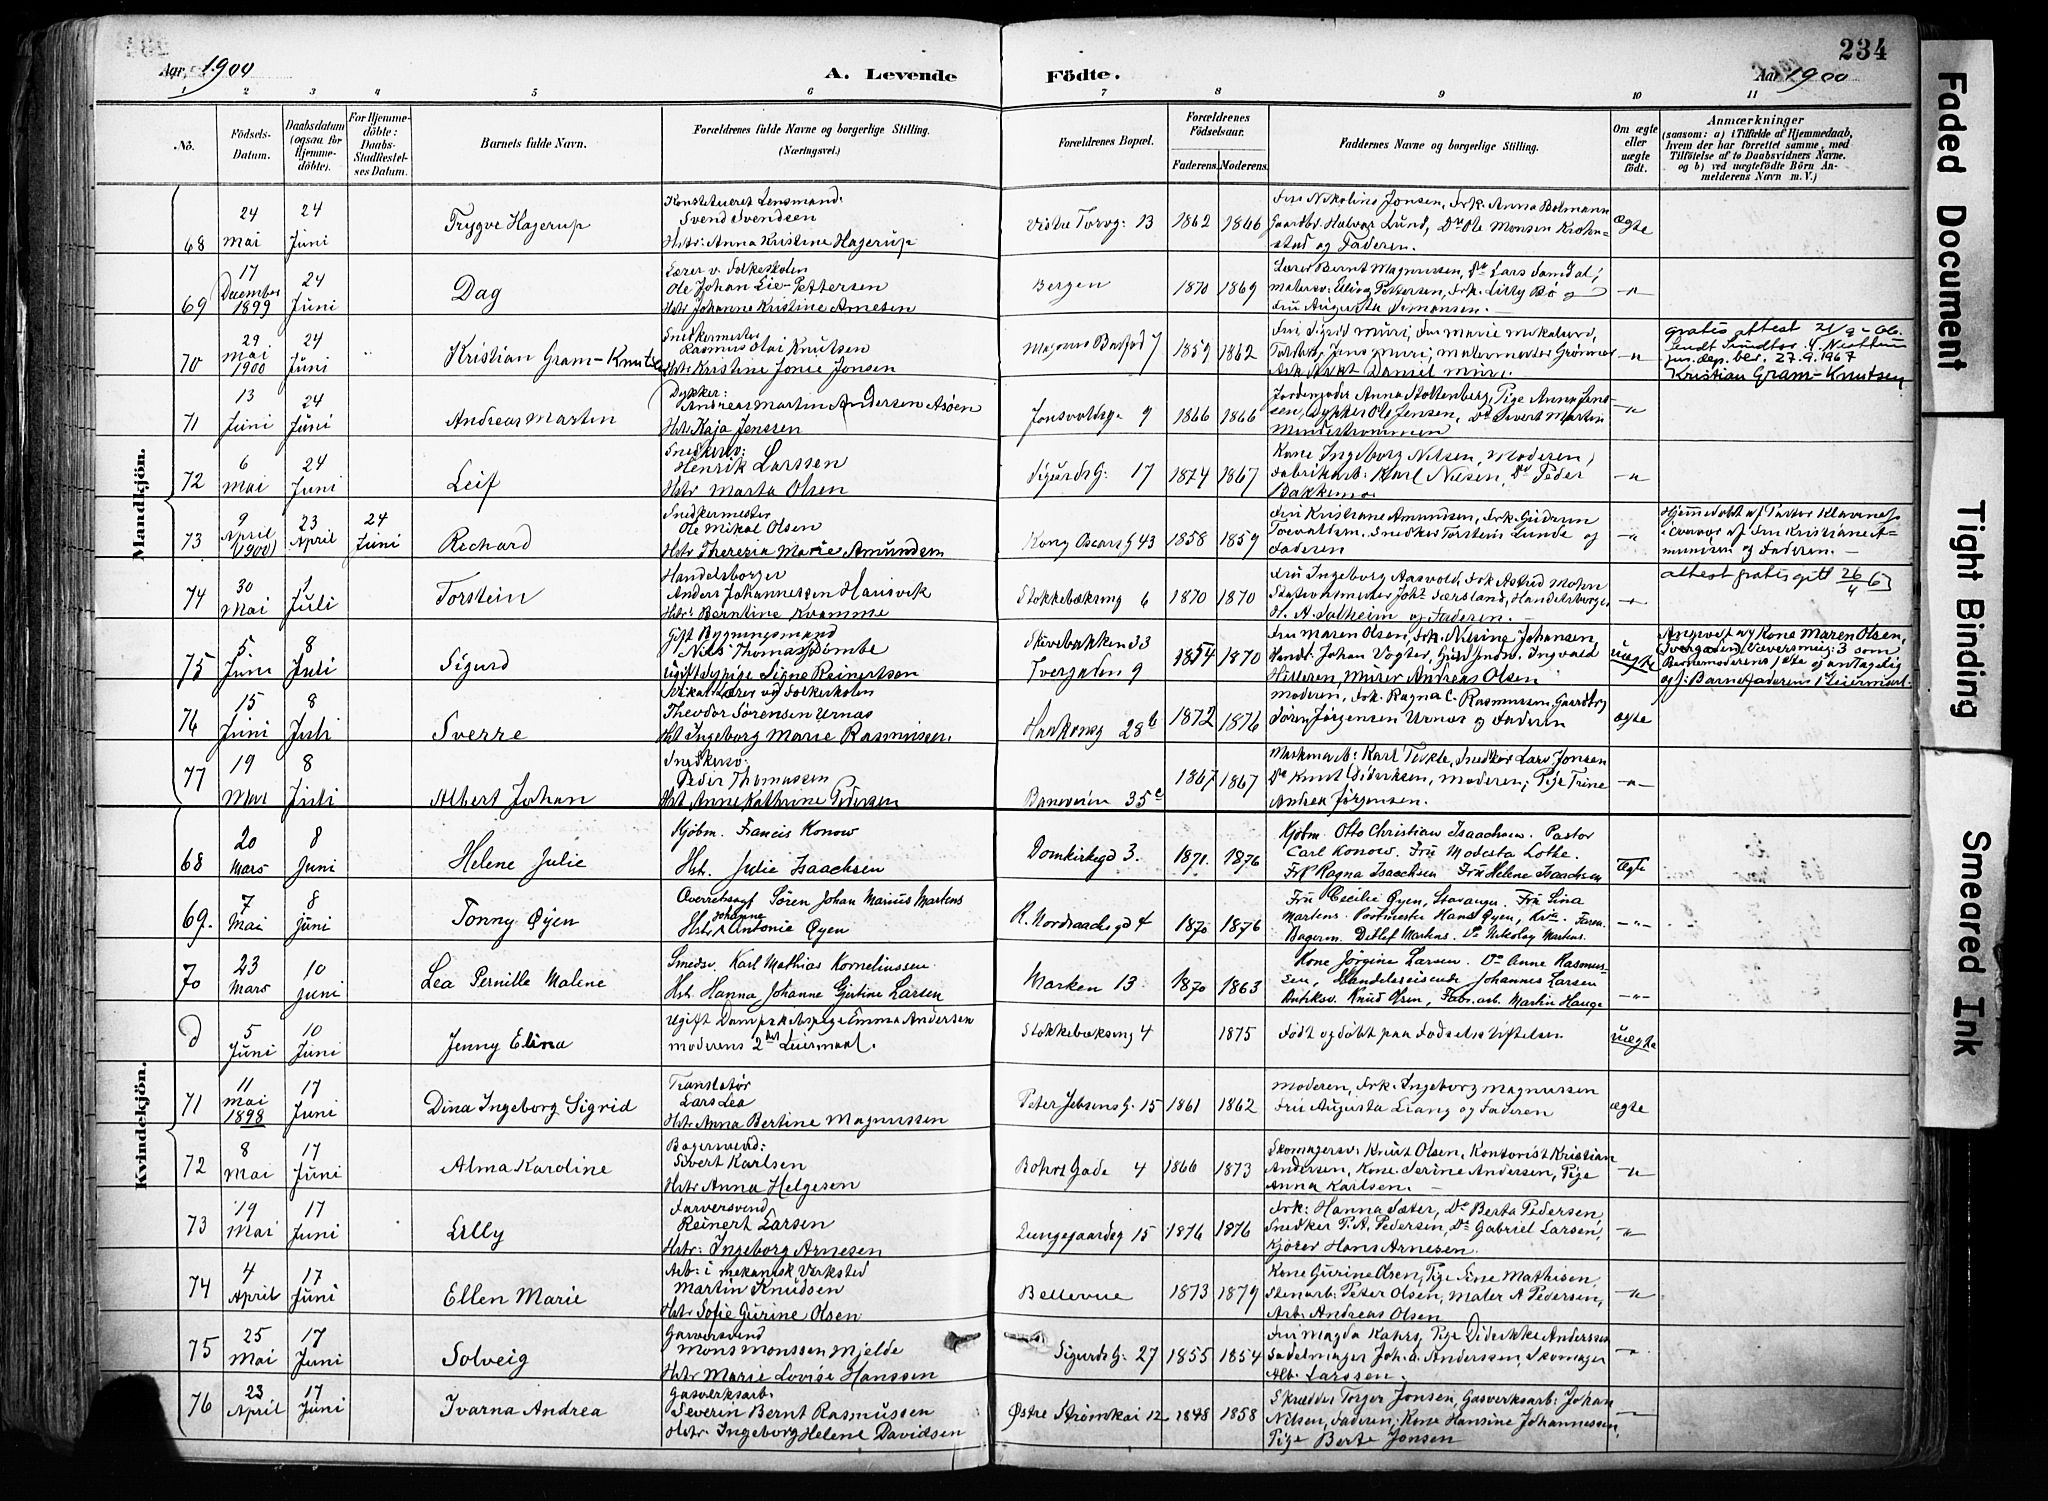 234
Aar 1900
A. Levende
Födte.
Aar 1900
1 2 3 4 5 6 7 8 9 10 11
No.
Födsels-Datum.
Daabsdatum (ogsaa for Hjemme-döbte).
For Hjemme-döbte: Daabs-Stadfæstel-ses Datum.
Barnets fulde Navn.
Forældrenes fulde Navne og borgerlige Stilling.
(Næringsvei.)
Forældrenes Bopæl.
Forældrenes Födselsaar.
Faderens. Moderens.
Faddernes Navne og borgerlige Stilling.
Om ægte eller uægte födt.
Anmærkninger
(saasom: a) i Tilfælde af Hjemmedaab, hvem der har forrettet samme, med Tilföielse af to Daabsvidners Navne. og b) ved uægtefödte Börn An-melderens Navn m. V.)
Mandkjön.
68 24 Mai 24 Juni Trygve Hagerup
Konstitueret Lensmand:
Svend Svendsen
Hstr: Anna Kristine Hagerup
Vestre Torvg: 13 1862 1866
Gaardbr. Halvor Lund, Do Ole Monsen Krohn-
stad og Faderen.
ægte
69 17 December 1899 24 Juni Dag
Lærer v. Folkeskolen
Ole Johan Lie-Pettersen
Hstr Johanne Kristine Arnesen
Bergen 1870 1869
Lærer Bernt Magnussen, Do Lars Samdal,
Fru Augusta Simonsen. —
—"—
70 29 Mai 1900 24 Juni Kristian Gram-Knutsen
Snedkermester
Rasmus Olai Knutsen
Hstr: Kristine Jonie Jonsen
1859 1862
Ark. Daniel Muri.
—"—
gratis attest
jus.dep. ber. 27.9.1967
Kristian Gram-Knutsen
71 13 Juni 24 Juni Andreas Martin
Dykker:
Andreas Martin Andersen Asöen
Hstr Kaja Jenssen
Jonsvoldsge 9 1866 1866
Jordemoder Anna Stoltenberg, Pige Anna Jens-
sen, Dykker Ole Jensen, Do Sivert Martin
—"—
72 6 Mai 24 Juni Leif
Snedkersv:
Henrik Larssen
Hstr Marta Olsen
Sigurdsg: 17 1874 1867
Kone Ingeborg Nilsen, Moderen,
Fabrikarb: Karl Nilsen, Do Peder
Bakkemo
—"—
73 9 April (1900) 23 April 24 Juni Richard
Snedkermester
Ole Mikal Olsen
Hstr Theresia Marie Amundsen
Kong Oscars G 43 1858 1859
Fru Kristiane Amundsen, Frk. Gudrun
Torvaldsen. Snedker Torstein Lunde og
Faderen
—"—
Hjemmedöbt af Pastor Klaveness
i nærvær af Fru Kristiane A-
mundsen og Faderen. —
74 30 Mai 1 Juli Torstein
Handelsborger
Anders Johannessen Hansvik
Hstr: Berntine Kvamme
Stokkebæksmg 6 1870 1870
Fru Ingeborg Aasvold, Frk Astrid Mohn
Stationsmester Johs Færsland, Handelsborger
H. A. Solheim og Faderen. —
—"—
attest gratis gitt 26/4 63
75 5 Juni 8 Juli Sigurd
Gift Bygningsmand
Nils Thomas Dombe
Ugift Sypige Signe Reinertsen
Skivebakken 33
Tvergaden 9
1854 1870
Fru Maren Olsen, Frk. Nilsine Johansen,
Handr: Johan Vogter, Ingvald
Hilleren, Murer Andreas Olsen
uægte
Angivet af Kone Maren Olsen,
Tvergaden, Væversmug: 3 som
Barnemoderens 1ste og antagelig
og: Barnefaderens 1 Leiermaal
76 15 Juni 8 Juli Sverre
Vikarlærer ved Folkeskolen
Theodor Sörensen Urnæs
Hst Ingeborg Marie Rasmussen.
Haukensg 28b 1872 1876
Moderen, Frk. Ragna C. Rasmussen, Gaardbr.
Sören Jörgensen Urnæs og Faderen
ægte
77 19 Mai 8 Juli Albert Johan
Snedkersv.
Peder Thomassen
Hst. Anne Kathrine Pedersen
Baneveien 35c 1867 1867
Maskinarb: Karl Teikle, Snedker Lars Jonsen
Do Knut Diderksen, Moderen, Pige Trine
Andrea Jörgensen.
—"—
Kvindekjön.
68 20 Mars 8 Juni Helene Julie
Kjöbm. Francis Konow
Hst. Julie Isaachsen
Domkirkegd 3. 1871. 1876
Kjöbm. Otto Christian Isaachsen. Pastor
Carl Konow. Fru Modesta Lothe.
Frk Ragna Isaachsen Fru Helene Isaachsen
Ægte
69. 7 Mai 8 Juni Tonny Øyen
Overretssagf Sören Johan Marius Martens
Hstr. Johanne Antonie Øyen
R. Nordraachsgd 4 1870 1876
Fru Cecilie Øyen, Stavanger. Fru Lina
Martens. Portmester Hans Øyen, Kr.ia Faren.
Bagerm. Ditlef Martens. Do Nikolay Martens.
—"—
70 23 Mars 10 Juni Lea Pernille Malene
Smedsv. Karl Mathias Korneliussen.
Hst. Hanna Johanne Gjertine Larsen
Marken 13. 1870 1863
Kone Jörgine Larsen. Do Anne Rasmus-
sen, Handelsreisende Johannes Larsen
Antiksv. Knud Olsen, Fabr.arb. Martin Hauge
—"—
d 5 Juni 10 Juni Jenny Elina
Ugift Dampskibspige Emma Andersen
Moderens 2det Leiermaal.
Stokkebæksmg 4 1875
Födt og döbt paa Födselsstiftelsen
uægte
71 11 Mai 1898 17 Juni Dina Ingeborg Sigrid
Translatör
Lars Lea
Hstr Anna Bertine Magnussen
Peter Jebsens G. 15 1861 1862
Moderen, Frk. Ingeborg Magnussen
Fru Augusta Liang og Faderen
ægte
72 8 Mai 17 Juni Alma Karoline
Bagersvend:
Sivert Karlsen
Hstr Anna Helgesen
Bohrs Gade 4 1866 1873
Skomagersv: Knut Olsen, Kontorist Kristian
Andersen, Kone Serine Andersen, Pige
Anna Karlsen. —
—"—
73 19 Mai 17 Juni Lilly
Farversvend
Reinert Larsen
Hstr: Ingeborg Arnesen
Lungegaardsg 15 1876 1876
Frk: Hanna Sæter, Do Berta Pedersen,
Snedker P. A. Pedersen, Do Gabriel Larsen,
Kjörer Hans Arnesen.
—"—
74 4 April 17 Juni Ellen Marie
Arb: i mekanisk Værksted
Martin Knudsen
Hstr Sofie Gurine Olsen
Bellevue 1873 1879
Kone Gurine Olsen, Pige Sine Mathisen,
Stenarb: Peter Olsen, Maler A Pedersen,
Arb: Andreas Olsen
—"—
75 25 Mai 17 Juni Solveig
Garversvend
Mons Monssen Mjelde
Hstr Marie Lovise Hanssen
Sigurdsg: 27 1855 1854
Fru Magda Kahrs, Pige Diderikke Anderssen
Sadelmager Joh. A. Anderssen, Skomager
Alb. Larssen.
—"—
76 23 April 17 Juni Ivarna Andrea
Gasverksarb.
Severin Bernt Rasmussen
Hstr: Ingeborg Helene Davidsen
Østre Strömkai 12 1848 1858
Skrædder Torger Jonsen, Gasverksarb: Johan
Nilsen, Faderen, Kone Hansine Johannessen,
Pige Berte Jonsen
—
Faded Document
Tight Binding
Smeared Ink